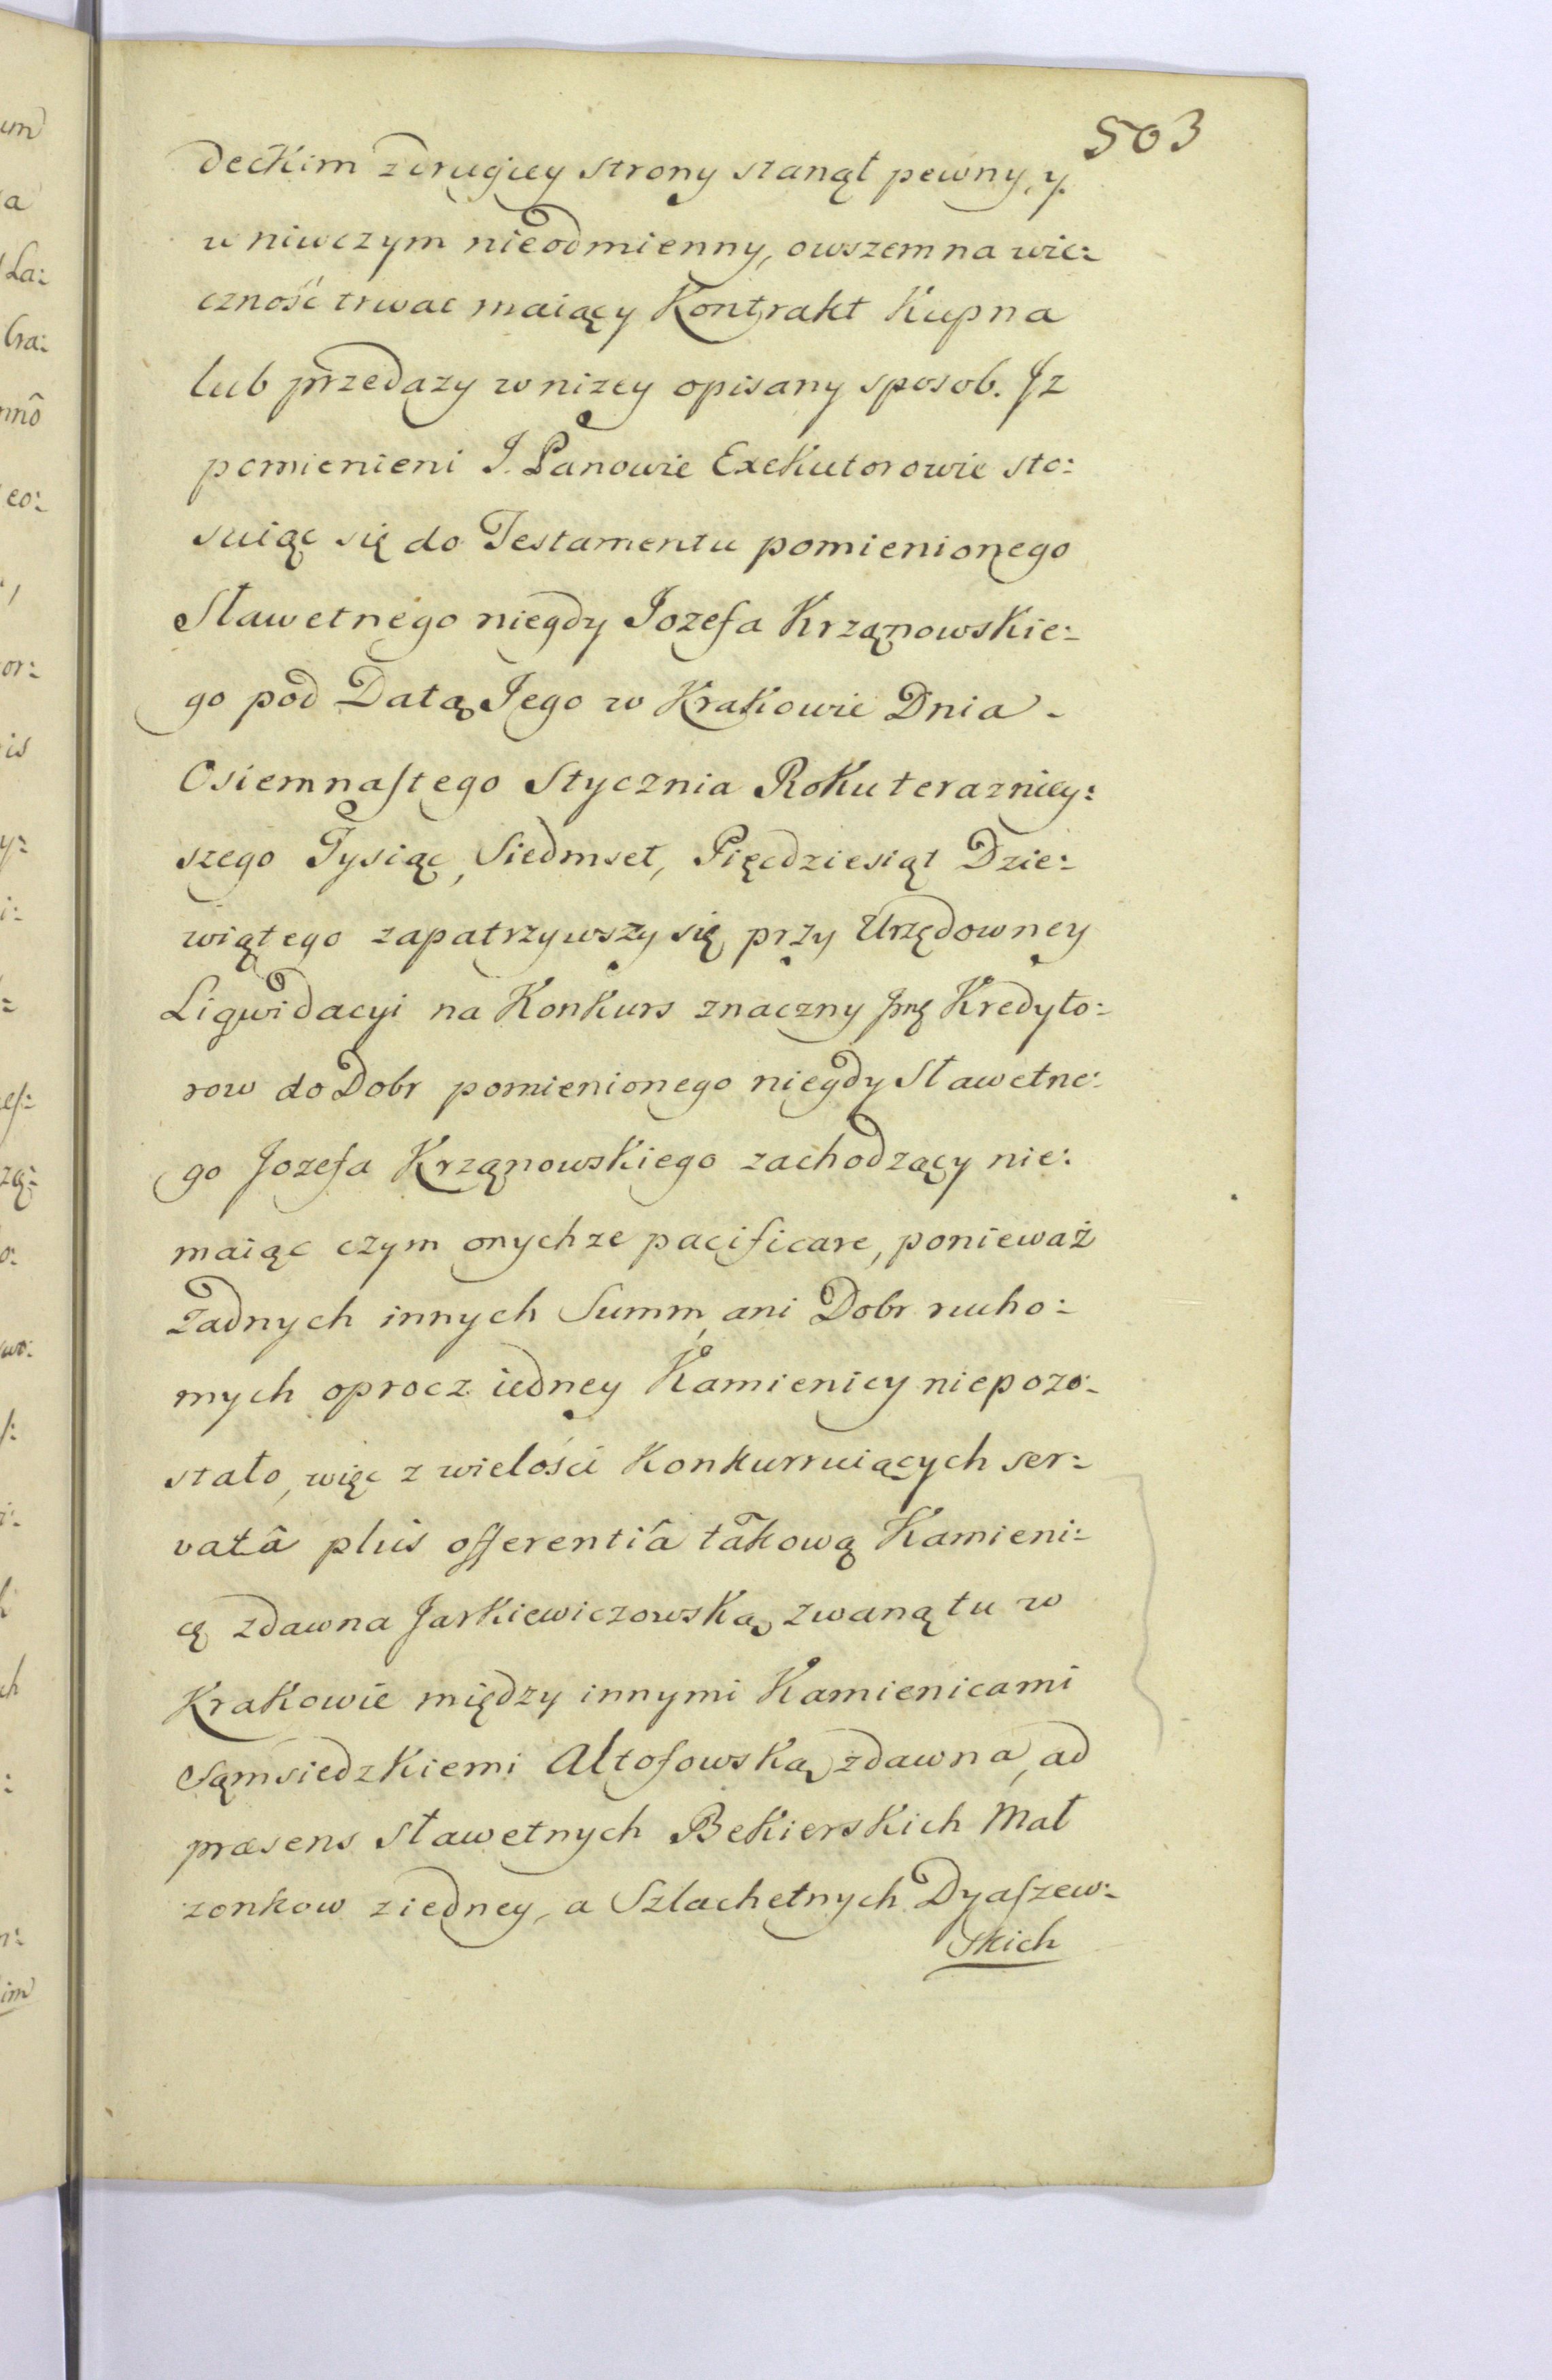 503
deckim z drugiey strony stanął pewny, y
w niwczym nieodmienny, owszem na wie:
czność trwac maiący Kontrakt Kupna
lub przedazy w nizey opisany sposob. Jz
pomienieni J. Panowie Exekutorowie sto:
suiąc się do Testamentu pomienionego
Sławetnego niegdy Jozefa Krząnowskie:
go pod Datą Jego w Krakowie Dnia -
Osiemnastego Stycznia Roku terazniey:
szego Tysiąc, Siedmset, Pięcdziesiąt Dzie:
wiątego zapatrzywszy się przy Urzędowney
Ligwidacyi na Konkurs znaczny Kredyto:
row do Dobr pomienionego niegdy Sławetne:
go Jozefa Krząnowskiego zachodzący nie:
maiąc czym onychze pacificare, ponieważ
Żadnych innych Summ, ani Dobr rucho:
mych oprocz iedney Kamienicy niepozo:
stało, więc z wielości Konkurruiących ser:
vatâ plus offerentiâ takową Kamieni:
cę zdawna Jarkiewiczowską zwaną tu w
Krakowie między innymi Kamienicami
Sąmsiedzkiemi Altofowską zdawna, ad
præsens Sławetnych Bekierskich Mał
zonkow z iedney, a Szlachetnych Dyaszew:
skich
um
a
La:
bra:
mnô
eo:
or:
is
y:
i:
zą:
o:
ch
im